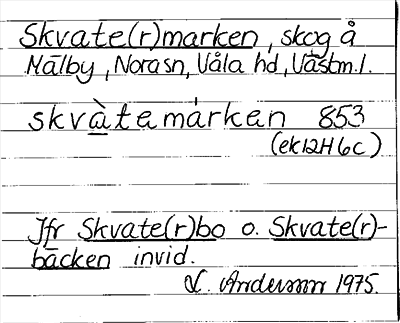 Skvate(r)marken, skog å
Mälby, Nora sn, Våla hd, Västm.l.
skvàtemárken 853
(ek12H6c)
Jfr Skvate(r)bo o. Skvate(r)-
bäcken invid.
L. Andersson 1975.